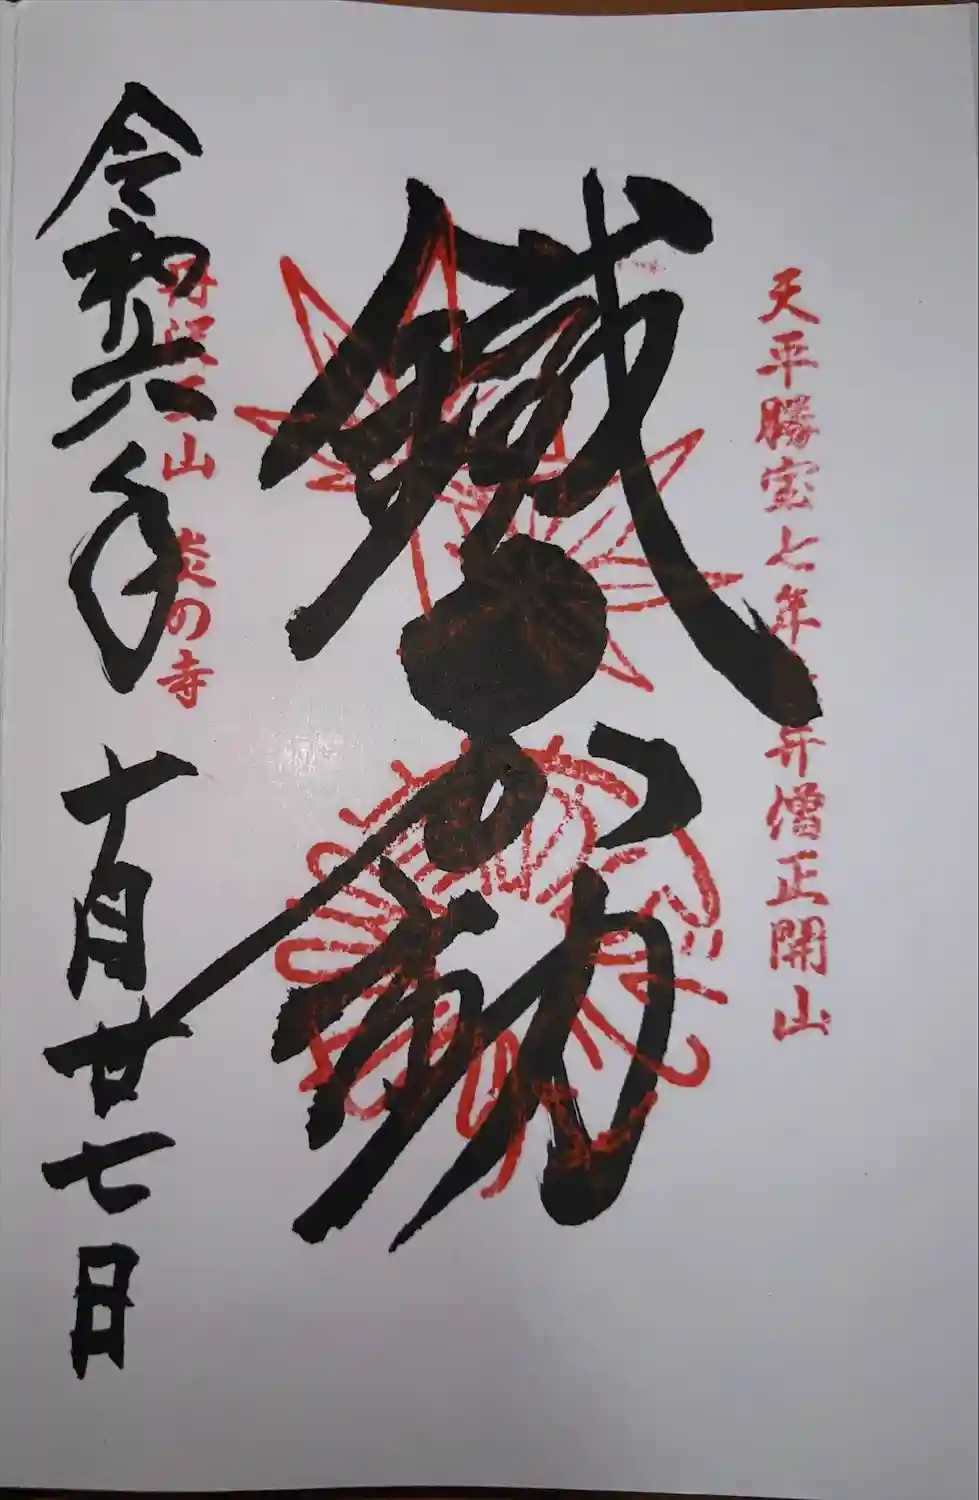 天平勝宝七年 弁僧正開山
鐵不動
丹沢 山 炎の寺
令和六年十月廿七日